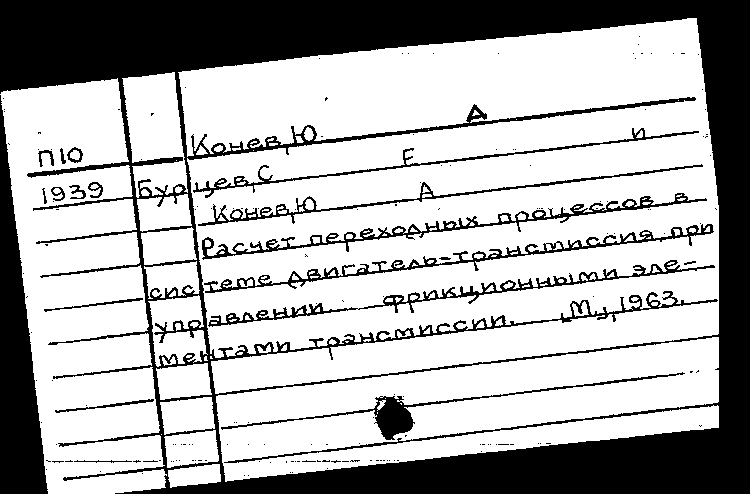 П10 Конев, Ю А
1939 Бурцев, С Е и
Конев, Ю А
Расчет переходных процессов в
системе двигатель-трансмиссия при
управлении фрикционными эле-
ментами трансмиссии. [М.], 1963.